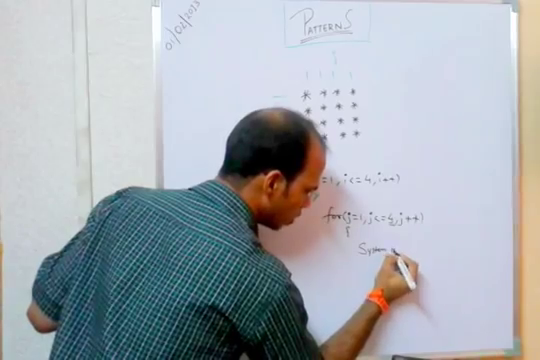 01/02/2023
PATTERNS
j
* * * *
* * *
* * *
* * *
=1, i<=4, i++)
for(j=1, j<=4, j++)
{
System